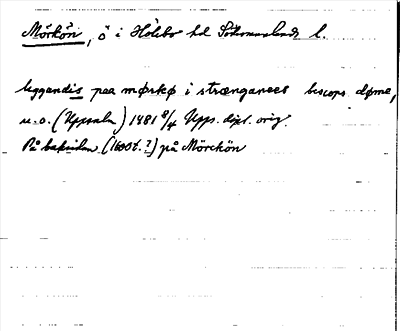 Mörkön, ö i Hölebo hd Södermanlands l.
liggandis paa mørkø i strænganees biscops døme,
u.o. (Uppsala) 1481 8/4 Upps. dipl. orig.
På baksidan (1600t.?) på Mörckön